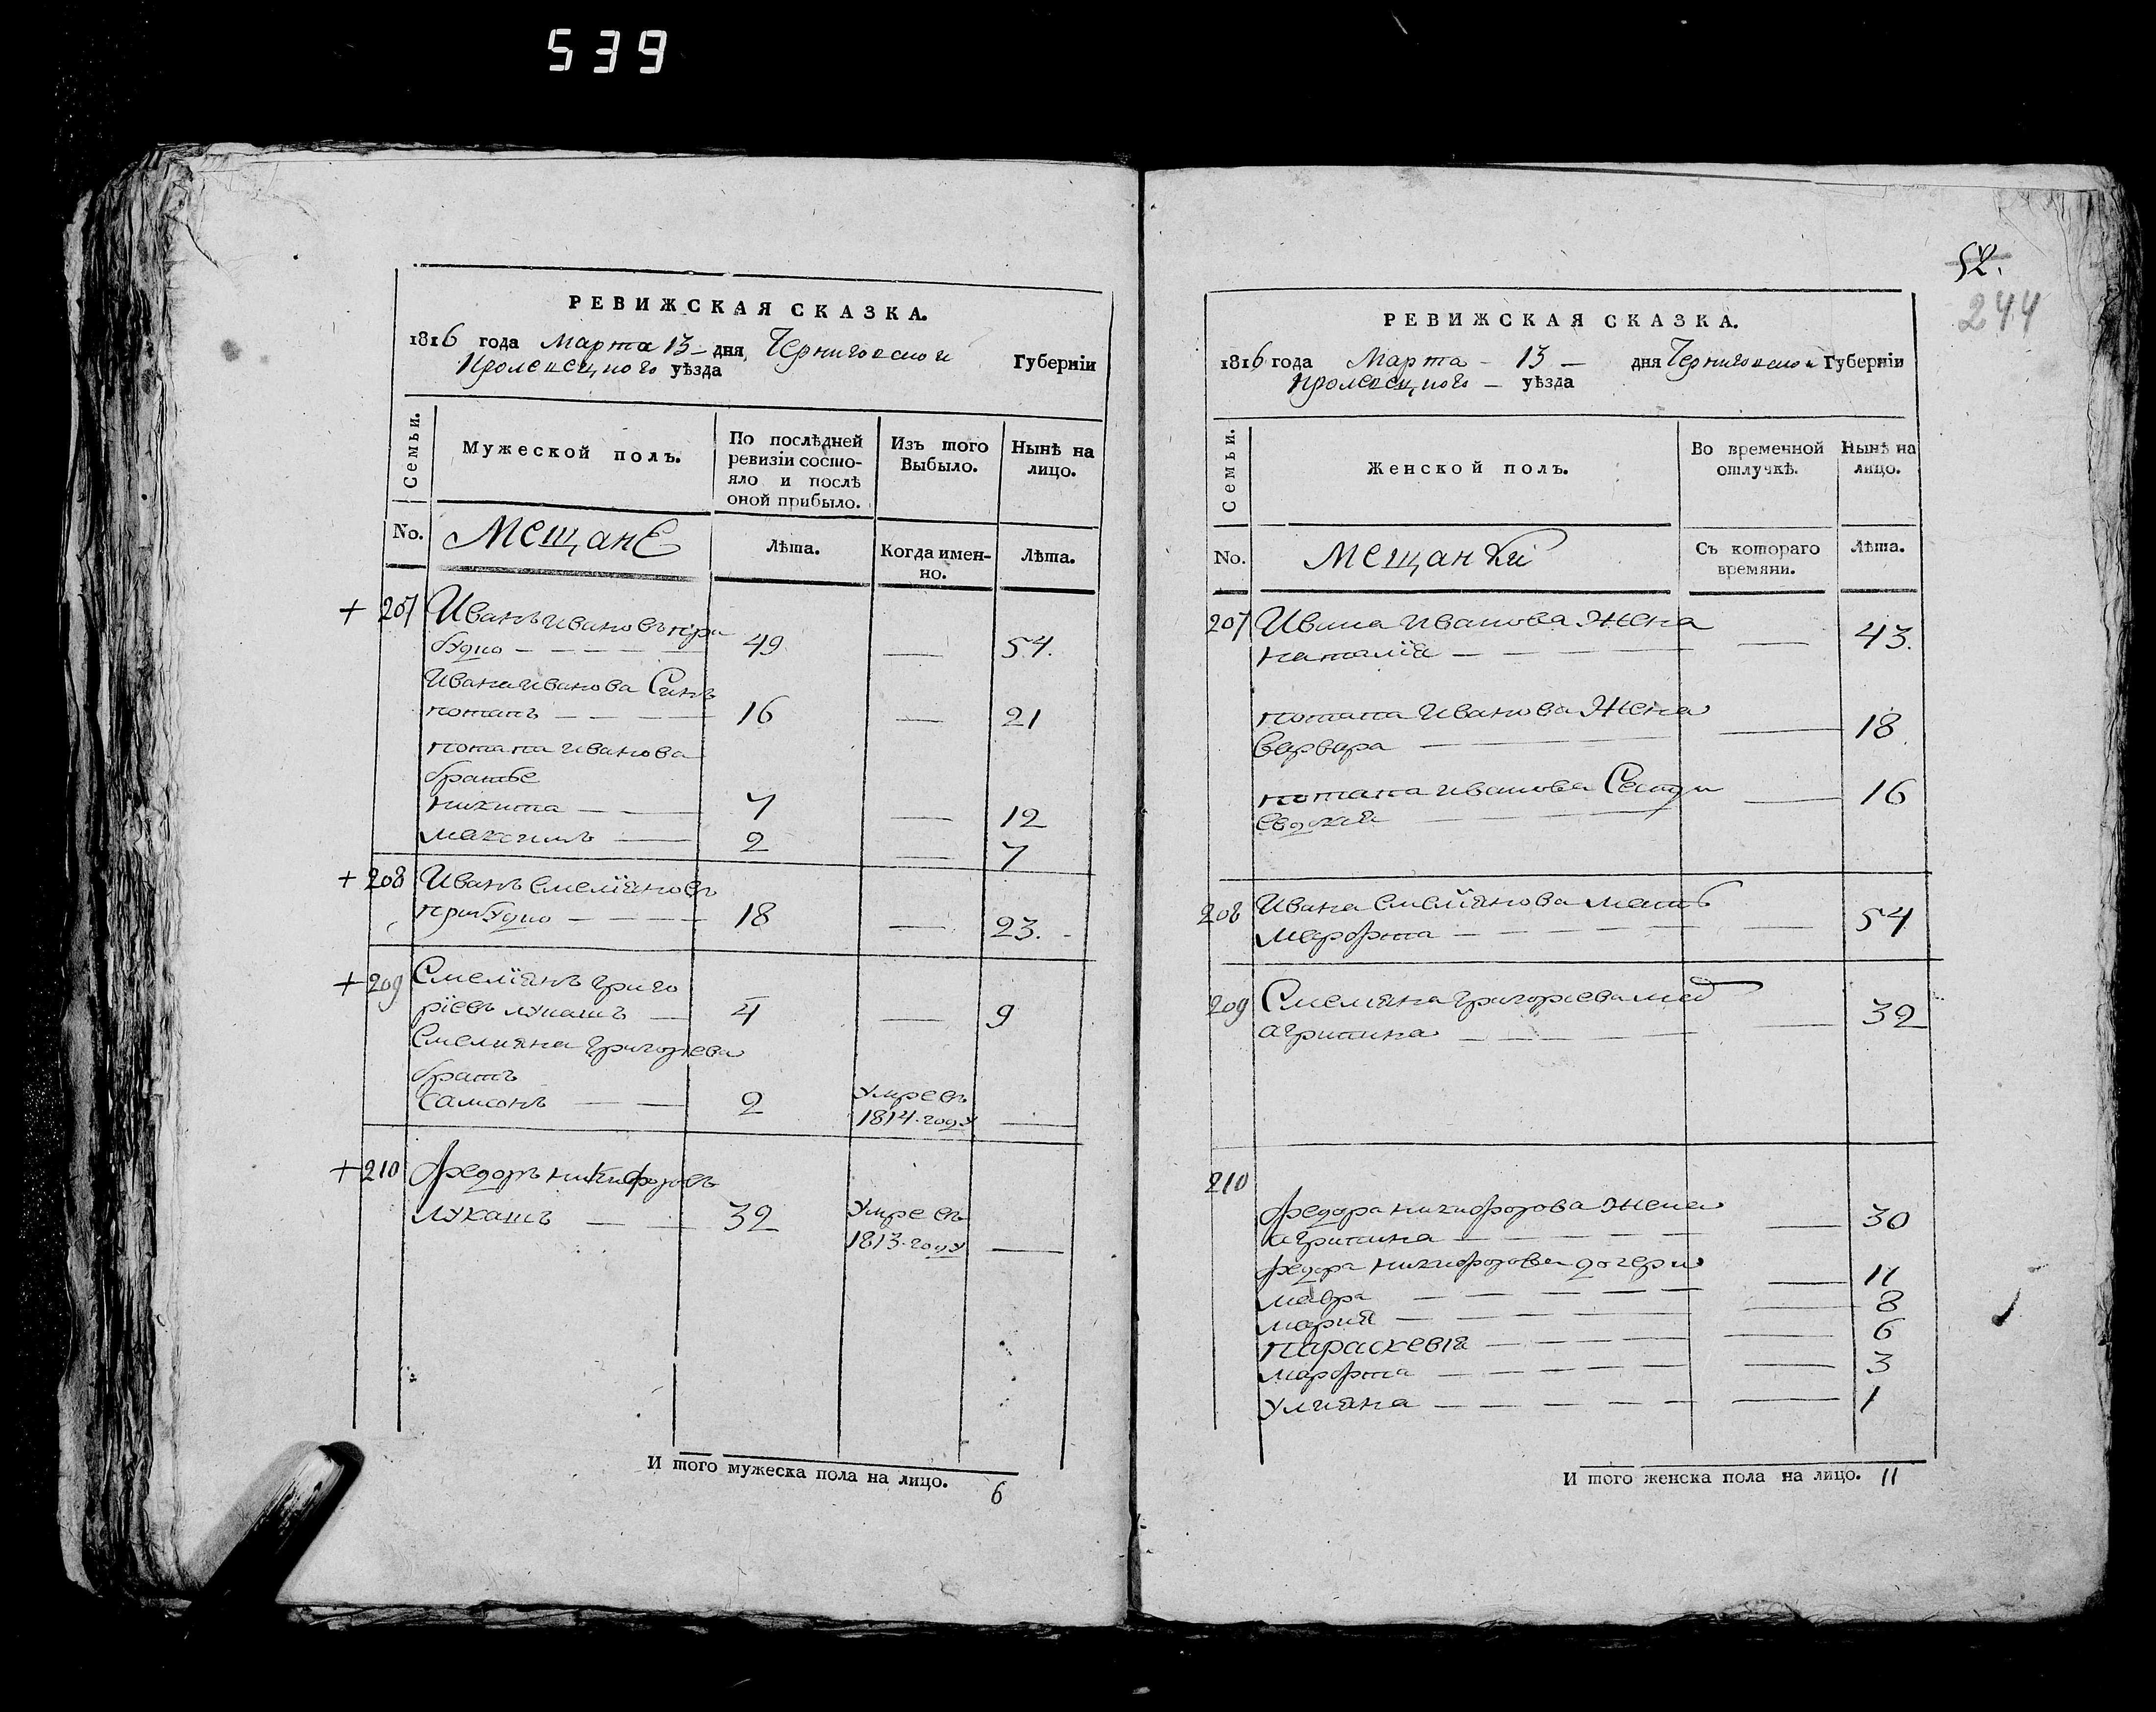 539
РЕВИЖСКАЯ СКАЗКА.
1816 года Марта 13 – дня, Черниговской Губерніи
Кролевецкого уѣзда
Семьи.
Мужеской полъ.
По послѣдней ревизіи состояло и послѣ оной прибыло.
Изъ того Выбыло.
Нынѣ на лицо.
No.
Мещане
Лѣта.
Когда именно.
Лѣта.
+ 207 Иванъ Ивановъ при
будко – – – – 49 — 54.
Ивана Иванова Синъ
потапъ – – – – 16 — 21
потапа Иванова
братье
никита – – 7 — 12
максимъ — 2 — 7
+ 208 Иванъ Емелїяновъ
прибудко – – – – 18 — 23.
+ 209 Емелїянъ Григо
рїевъ лукашъ — 4 — 9
Емелияна Григорїева
братъ
Самсонъ — — 2 Умревъ
1814 году —
+ 210 Федоръ никифоровъ
лукашъ — — 32 Умревъ
1813 году —
И того мужеска пола на лицо. 6
52.
244
РЕВИЖСКАЯ СКАЗКА.
1816 года Марта – 13 – дня Черниговской Губерніи
Кролевецкого – уѣзда
Семьи.
Женской полъ.
Во временной отлучкѣ.
Нынѣ на лицо.
No.
Мещанкі
Съ котораго времяни.
Лѣта.
207 Ивана Иванова Жена
наталїя – – – – — 43.
потапа Иванова Жена
Варвара — 18
потапа Иванова Сестри
— 16
208 Ивана Емелїянова мать
марфта – – – – — 54
209 Емелияна Григориева мат
агрипина – – – – — 32
210
Федора никифорова Жена
агрипина – – – – — 30
Федора никифорова дочери
мавра – – – – — 11
мария – – – – — 8
параскевїя – – – – — 6
марфта – – – – — 3
улияна – – – – — 1
И того женска пола на лицо. 11